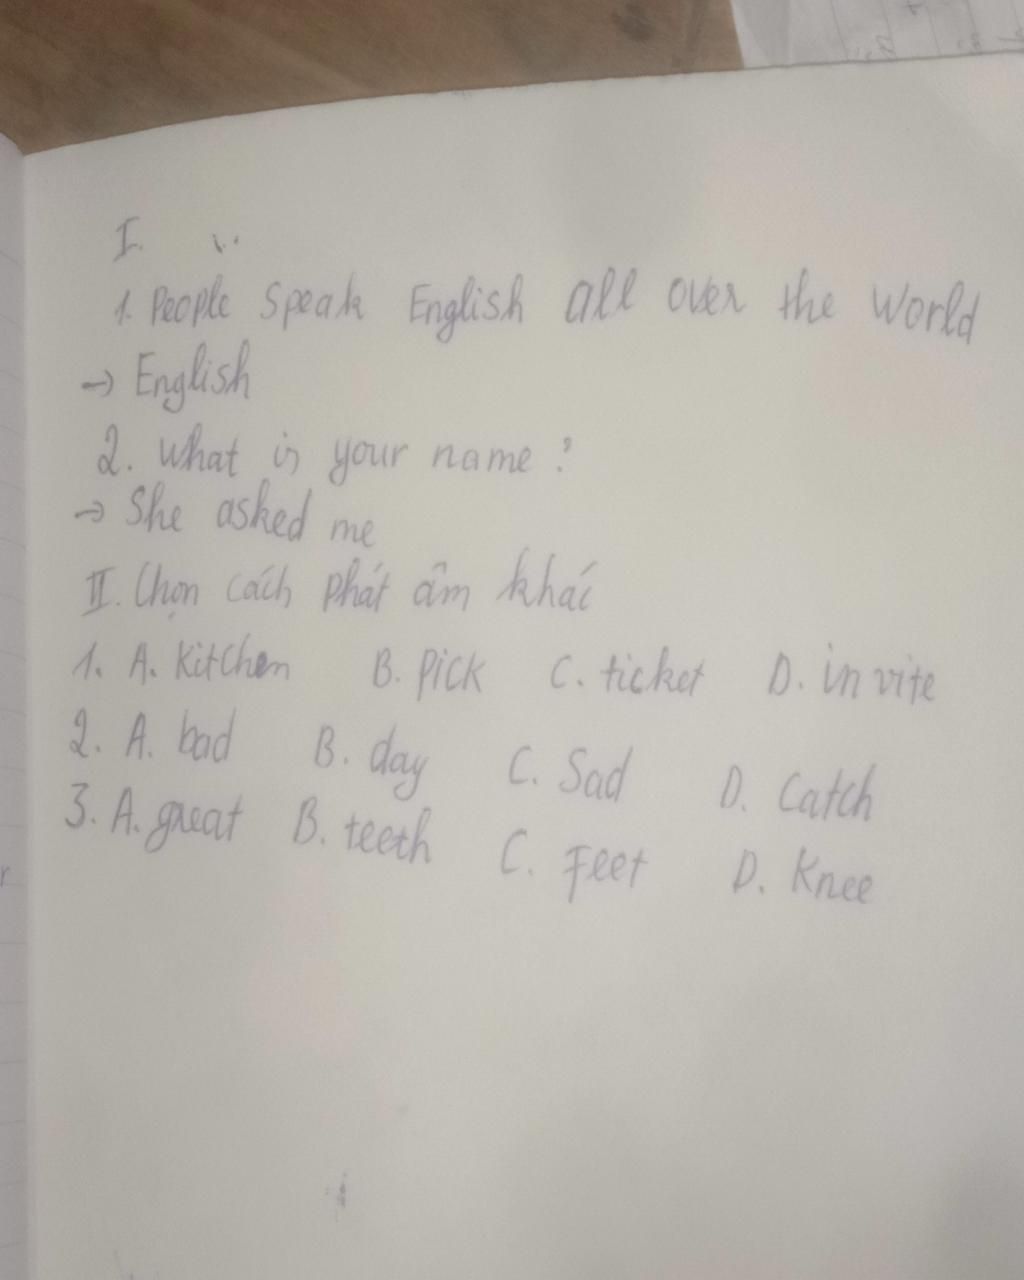 I.
1. People speak English all over the world
→ English
2. What is your name?
→ She asked me
II. Chọn cách phát âm khác
1. A. Kitchen B. Pick C. ticket D. invite
2. A. bad B. day C. Sad D. Catch
3. A. great B. teeth C. Feet D. Knee